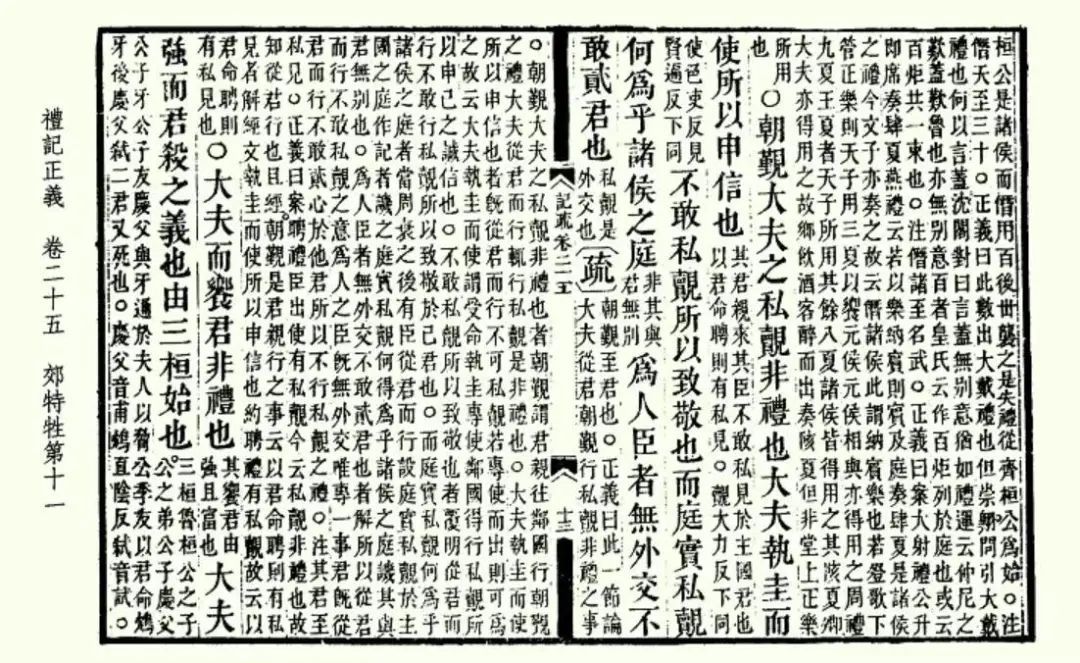 桓公是諸侯而僭用百後世襲之是失禮從齊桓公為始○注
僭天至三十○正義曰此數出大戴禮也但崇翱問引大戴
禮也何以言蓋沈閣對曰言蓋無別意猶如禮運云仲尼之
歎蓋歎魯也亦無別意百者皇氏云作百炬列於庭也或云
百炬共一束也○注僭諸至名武○正義曰案大射禮公升
即席奏肆夏燕禮云若以樂納賓則賓及庭奏肆夏是諸侯
之禮今文子亦奏之故云僭諸侯此謂納賓樂也若登歌下
管正樂則天子用三夏以饗元侯元侯相與亦得用之周禮
九夏王夏者天子所用其餘八夏諸侯皆得用之其陔夏卿
大夫亦得用之故鄉飲酒客醉而出奏陔夏但非堂上正樂
所用
也
○朝覲大夫之私覿非禮也大夫執圭而
使所以申信也
其君親來其臣不敢私見於主國君也
以君命聘則有私見○覿大力反下同
使色吏反見
賢遍反下同
不敢私覿所以致敬也而庭實私覿
何為乎諸侯之庭
非其與
君無別
為人臣者無外交不
敢貳君也
私覿是
外交也
疏
朝覲至君也○正義曰此一節論
大夫從君朝覲行私覿非禮之事
記疏卷二十五
十三
○朝覲大夫之私覿非禮也者朝覲謂君親往鄰國行朝覲
之禮大夫從君而行輒行私覿是非禮也○大夫執圭而使
所以申信也者既從君而行不可私覿若專使而出則可為
之故云大夫執圭而使謂受命執圭專使鄰國得行私覿所
以申己之誠信也○不敢私覿所以致敬也者覆明從君而
行不敢行私覿所以致敬於己君也○而庭實私覿何為乎
諸侯之庭者當周衰之後有臣從君而行設庭實私覿於主
國之庭作記者譏之庭實私覿何得為乎諸侯之庭譏其與
君無別也○為人臣者無外交不敢貳君也者解所以從君
而行不敢私覿之意為人之臣既無外交唯專一事君既從
君而行不敢貳心於他君所以不行私覿之禮○注其君至
私見○正義曰案聘禮臣出使有私覿今云私覿非禮也故
知從君行也且經朝覲是君親行之事云以君命聘則有私
見者解經文執圭而使所以申信也約聘禮有私覿故云以
君命聘則
有私見也
○大夫而饗君非禮也
其饗君由
強且富也
大夫
強而君殺之義也由三桓始也
三桓魯桓公之子莊
公之弟公子慶父
公子牙公子友慶父與牙通於夫人以脅公季友以君命鴆
牙後慶父弒二君又死也○慶父音甫鴆直蔭反弒音試○
禮記正義 卷二十五 郊特牲第十一